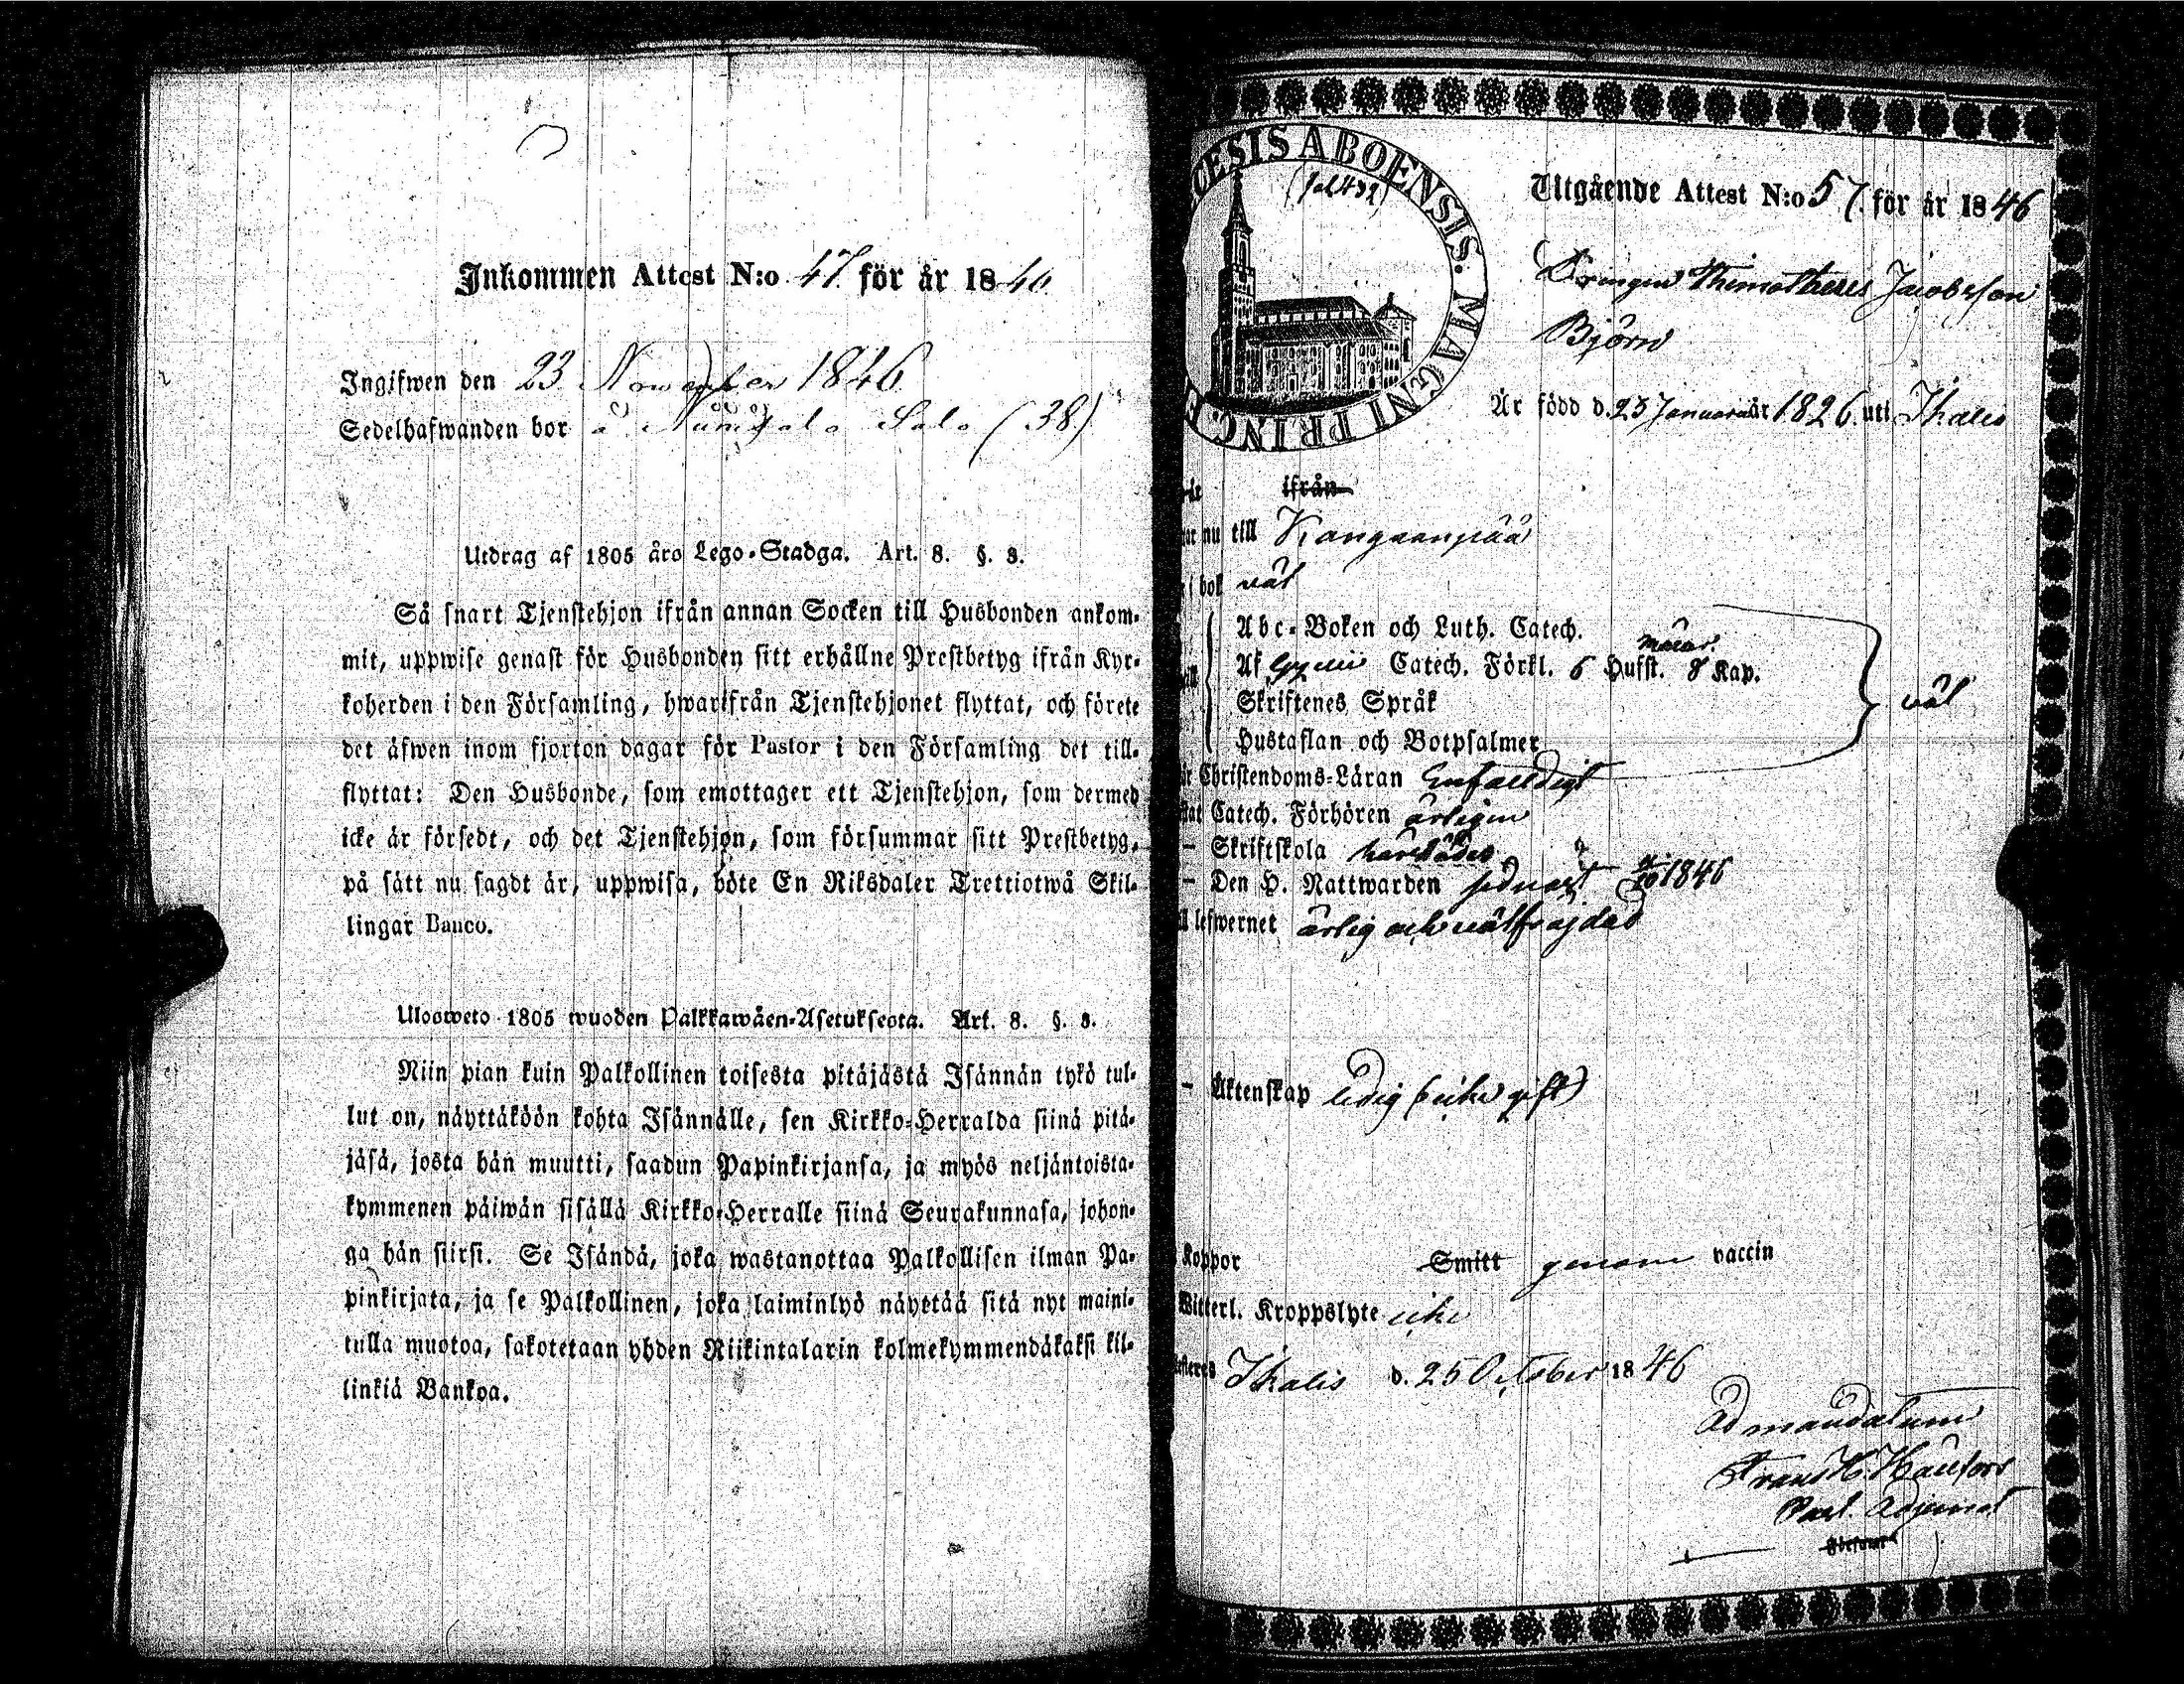 Inkommen Attest N:o 47 för år 1846
Ingifwen den 23 November 1846
Sedelhafwanden bor å Salo (38)
Utdrag af 1805 års Lego-Stadga. Art. 8. §. 3.
Så snart Tjenstehjon ifrån annan Socken till Husbonden ankom-
mit, uppwise genast för Husbonden sitt erhållne Prestbetyg ifrån Kyr-
koherden i den Församling, hwarifrån Tjenstehjonet flyttat, och förete
det äfwen inom fjorton dagar för Pastor i den Församling det till-
flyttat: Den Husbonde, som emottager ett Tjenstehjon, som dermed
icke är försedt, och det Tjenstehjon, som försummar sitt Prestbetyg,
på sätt nu sagdt är, uppwisa, böte En Riksdaler Trettiotwå Skil-
lingar Banco.
Ulosweto 1805 wuoden Palkkawäen-Asetuksesta. Art. 8. §. 3.
Niin pian kuin Palkollinen toisesta pitäjästä Isännän tykö tul-
lut on, näyttäköön kohta Isännälle, sen Kirkko-Herralda siinä pitä-
jäsä, josta hän muutti, saadun Papinkirjansa, ja myös neljäntoista-
kymmenen päiwän sisällä Kirkko-Herralle siinä Seurakunnasa, johon-
ga hän siirsi. Se Isändä, joka wastanottaa Palkollisen ilman Pa-
pinkirjata, ja se Palkollinen, joka laiminlyö näyttää sitä nyt maini-
tulla muotoa, sakotetaan yhden Riikintalarin kolmekymmendäkaksi kil-
linkiä Bankoa.
CESIS ABOENSIS. MAGNI PRINC.
Utgående Attest N:o 57 för år 1846
Drängen Thimotheus Jacobsson
Björn
Är född d. 23 Januari år 1826 uti Ikalis
ifrån
nu till Kangaanpää
i bok väl
Abc-Boken och Luth. Catech.
Af Catech. Förkl. 6 Hufst. 8 Kap.
Skriftenes Språk
Hustaflan och Botpsalmer
väl
Christendoms-Läran Enfaldigt
Catech. Förhören årligen
- Skriftskola härstädes
- Den H. Nattwarden sednast 1846
lefwernet ärlig och välfräjdad
- Äktenskap ledig (icke gift)
Koppor Smitt genom vaccin
Witterl. Kroppslyte icke
Ikalis d. 25 October 1846
Ad mandatum
Frans H.
Past. Adjunct